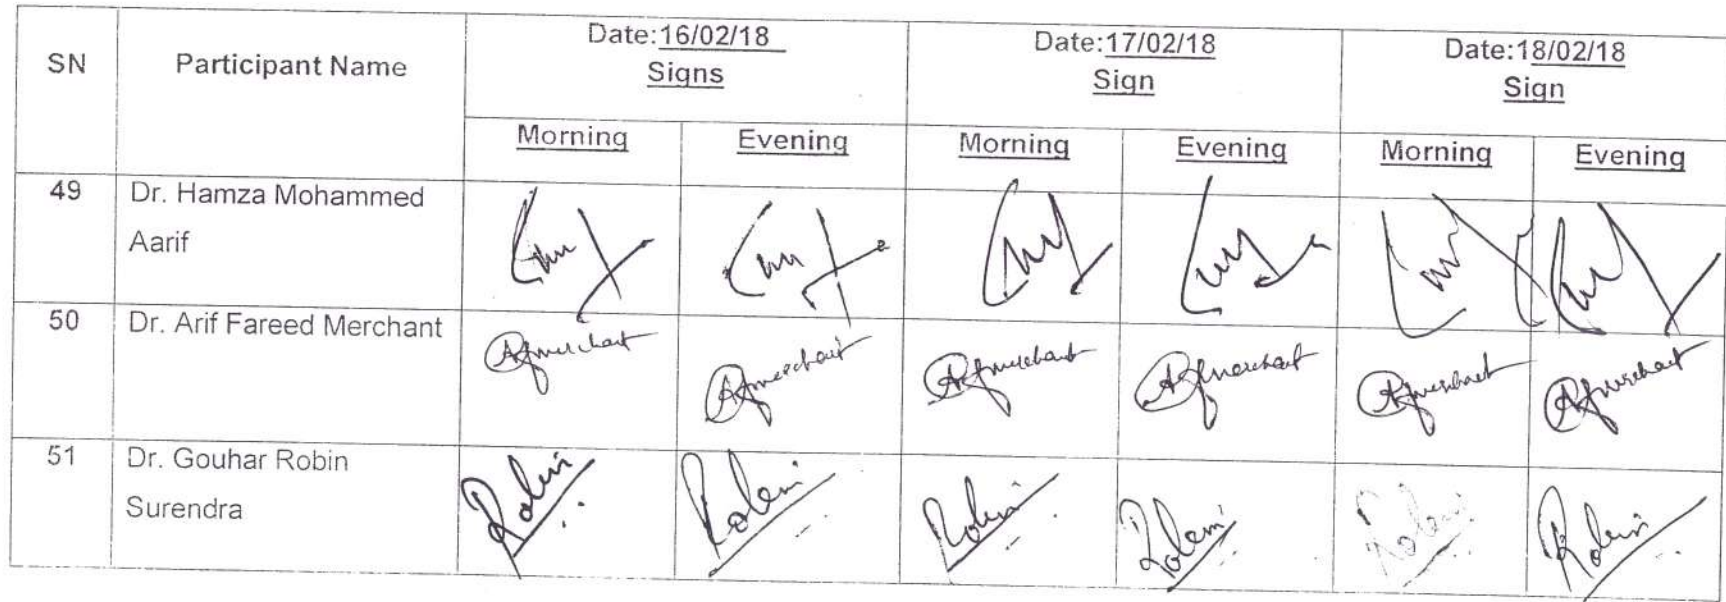 SN Participant Name Date:16/02/18 Date:17/02/18 Date:18/02/18
Signs Sign Sign
Morning Evening Morning Evening Morning Evening
49 Dr. Hamza Mohammed
Aarif
50 Dr. Arif Fareed Merchant Afmerchant Afmerchant Afmerchant Afmerchant Afmerchant Afmerchant
51 Dr. Gouhar Robin Robin Robin Robin Robin Robin Robin
Surendra